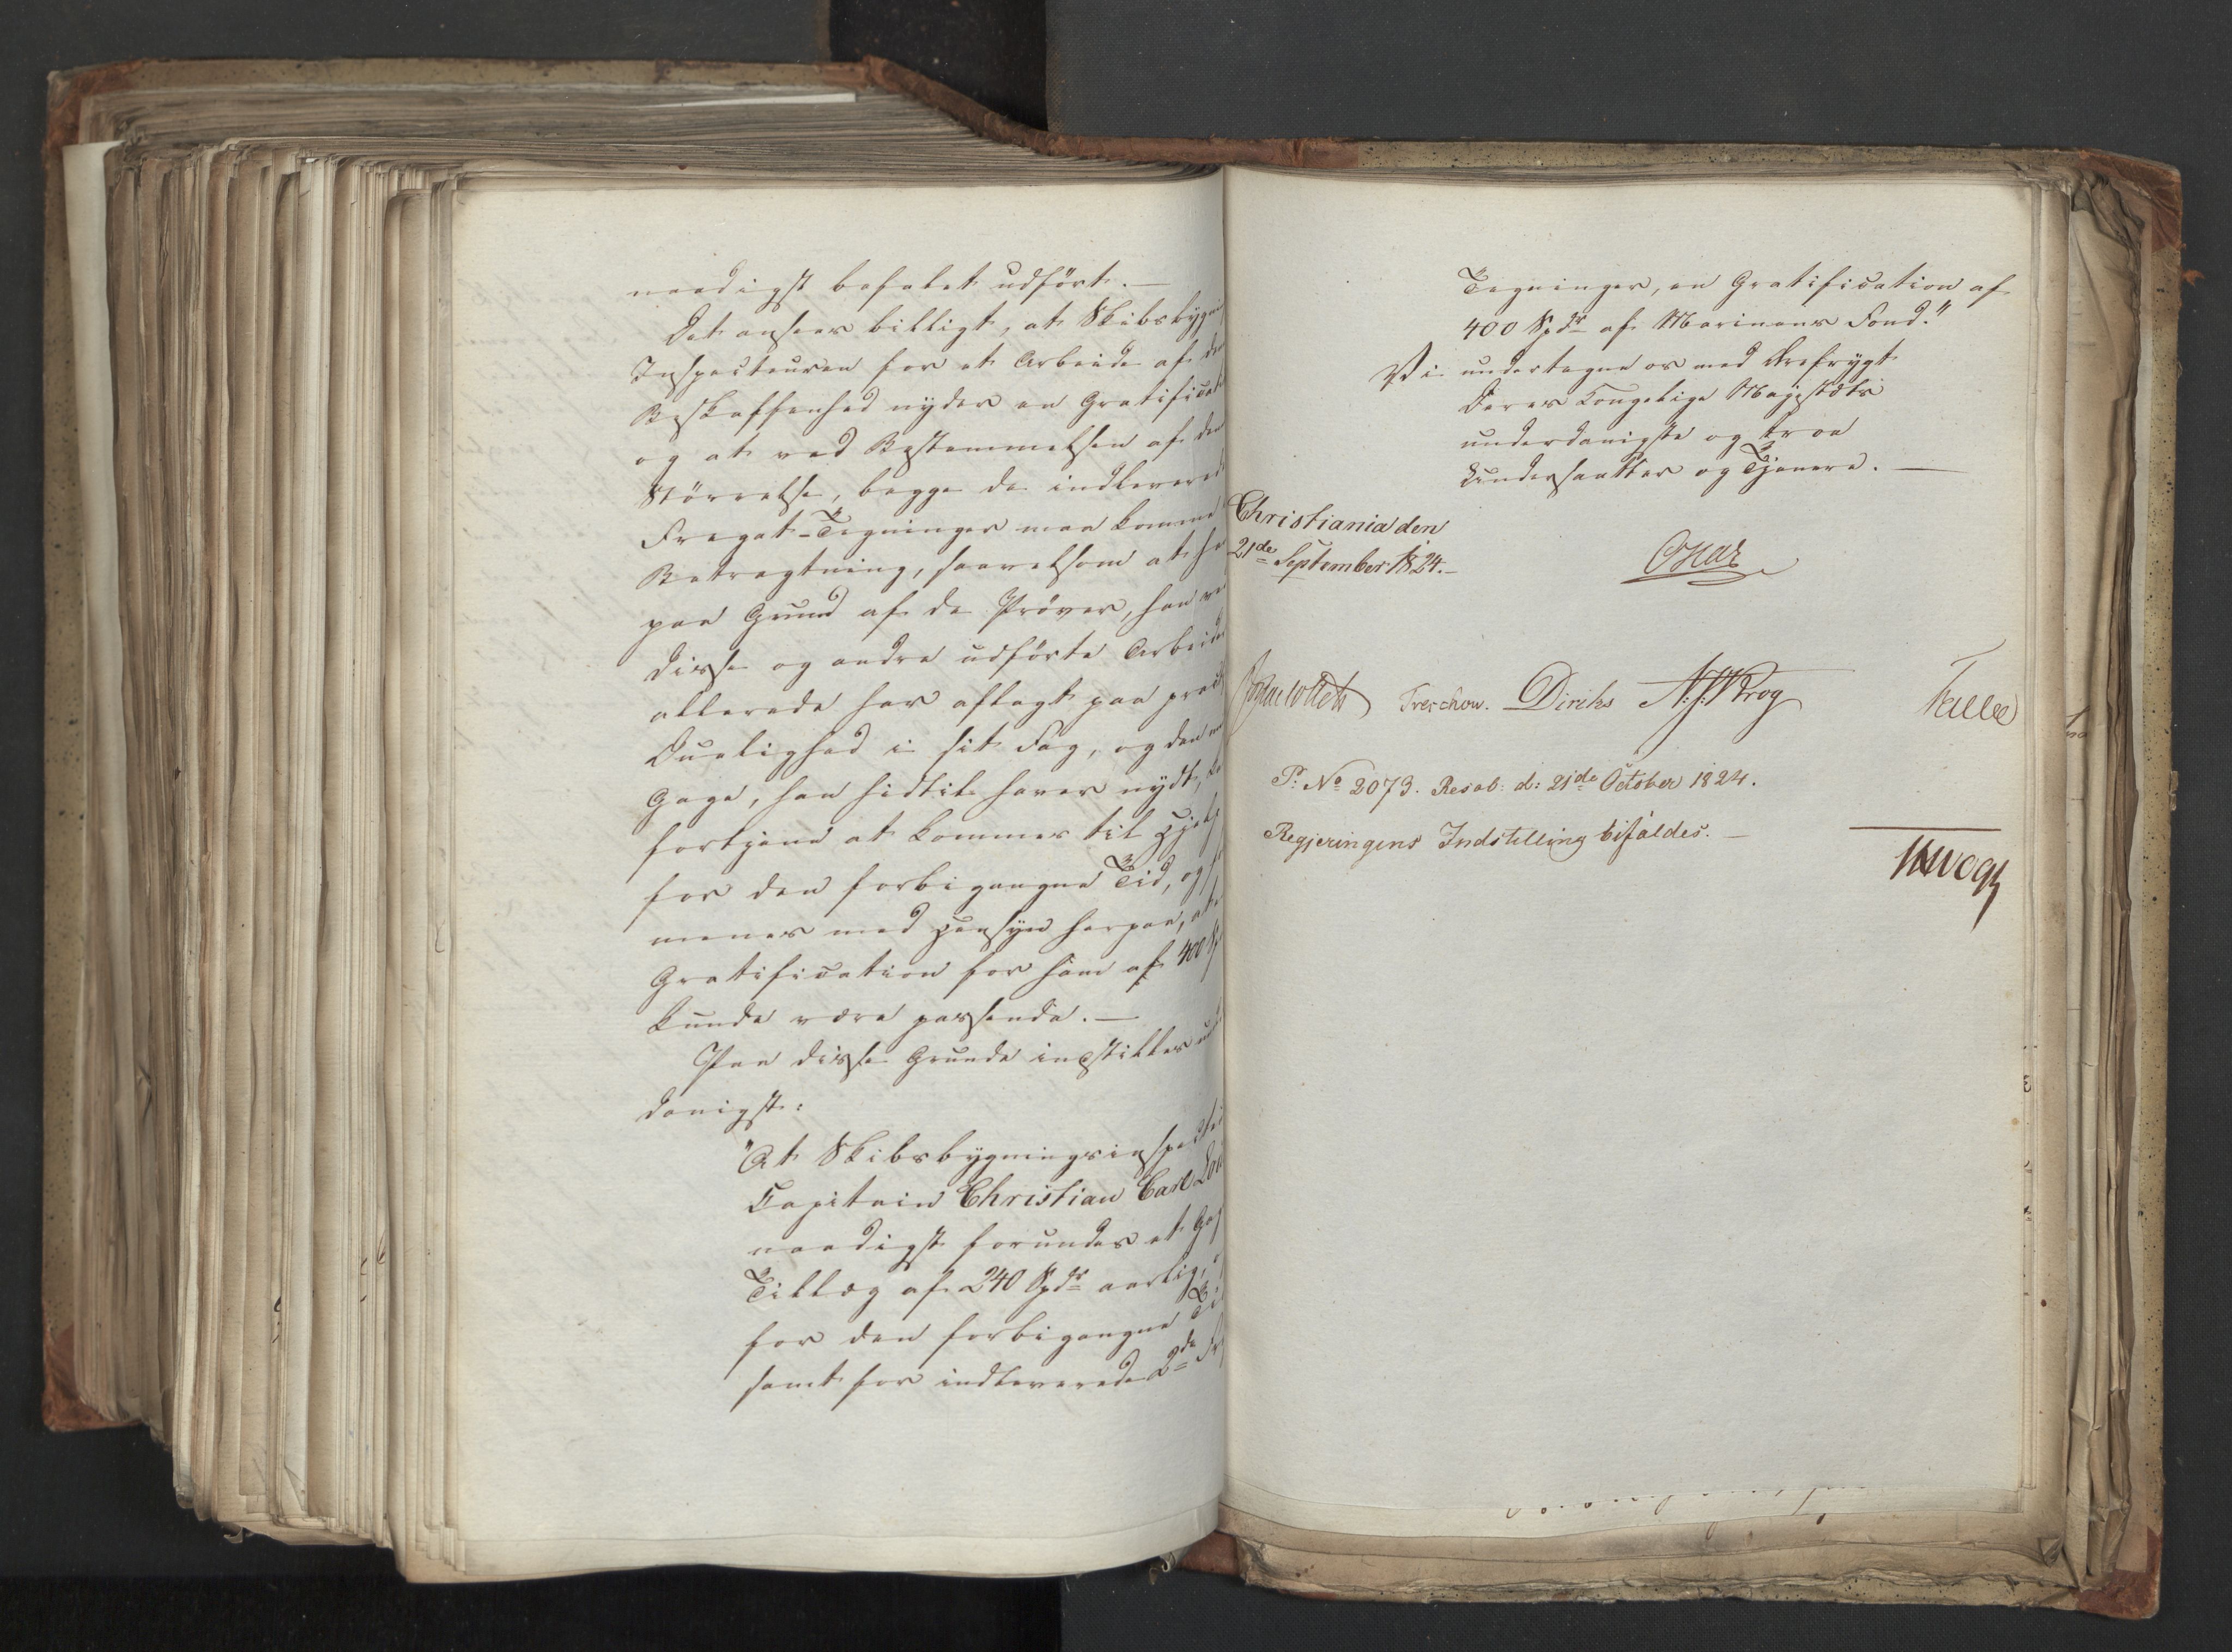 naadigst befalet udført. —
Det ansees billigt, at Skibsbygnin
Inspecteuren for et Arbeide af den
Beskaffenhed nyder en Gratificati
og at ved Bestemmelsen af den
Størrelse, begge de indleverede
Fregat-Tegninger maa komme
Betragtning, saavelsom at ha
paa Grund af de Prøver, han ve
disse og andre udførte Arbeider
allerede har aflagt paa prac
Duelighed i sit Fag, og den
Gage, han hidtil haver nydt,
fortjene at komme til Hjelp
for den forbigangne Tid, og
menes med Hensyn herpaa, at
Gratification for ham af 400 Sp
kunde være passende. —
Paa disse Grunde indstilles und
danigst:
"At Skibsbygningsinspecteu
Capitain Christian Carl
naadigst forundes et Gag
Tillæg af 240 Spdr aarlig,
for den forbigangne Ti
samt for indleverede 2de Fr
Tegninger, en Gratification af
400 Spdr af Marinens Fond."
Vi undertegne os med Ærefrygt
Deres Kongelige Majestæts
underdanigste og troe
Undersaatter og Tjenere. —
Christiania den
21de September 1824. —
Oscar
Treschow. Diriks Krog
P: No 2073. Resol: d: 21de October 1824.
Regjeringens Indstilling bifaldes. —